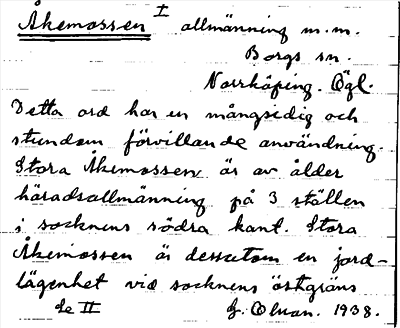 Åkemossen I allmänning m.m.
Borgs sn.
Norrköping. Ögl.
Detta ord har en mångsidig och
stundom förvillande användning.
Stora Åkemossen är av ålder
häradsallmänning på 3 ställen
i socknens södra kant. Stora
Åkemossen är dessutom en jord-
lägenhet vid socknens östgräns
se II 1938.